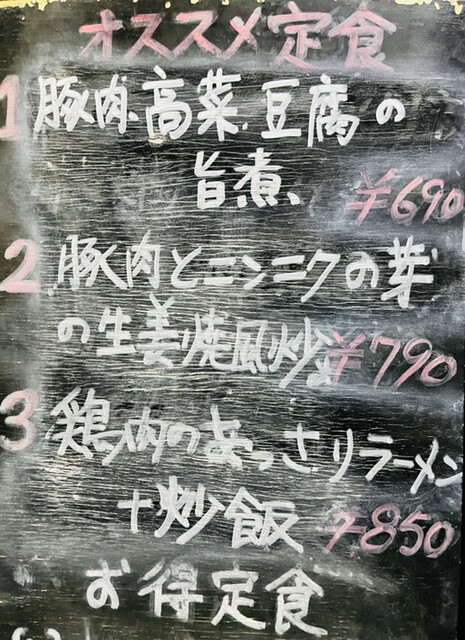 オススメ定食
1 豚肉、高菜、豆腐の
旨煮、 ¥690
2 豚肉とニンニクの芽
の生姜焼風炒め ¥790
3 鶏肉のあっさりラーメン
+炒飯 ¥850
お得定食